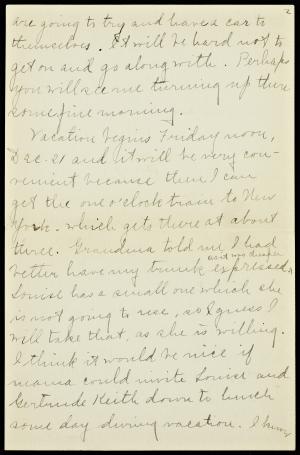 2
are going to try and have a car to
themselves. It will be hard not to
get on and go along with. Perhaps
you will see me turning up there
some fine morning.
Vacation begins Friday noon,
Dec. 21 and it will be very con-
venient because then I can
get the one o'clock train to New
York. which gets there at about
three. Grandma told me I had
better have my trunk expressed,
as it was cheaper
Louise has a small one which she
is not going to use, so I guess I
will take that, as she is willing.
I think it would be nice if
mama could invite Louise and
Gertrude Keith down to lunch
some day during vacation. I know